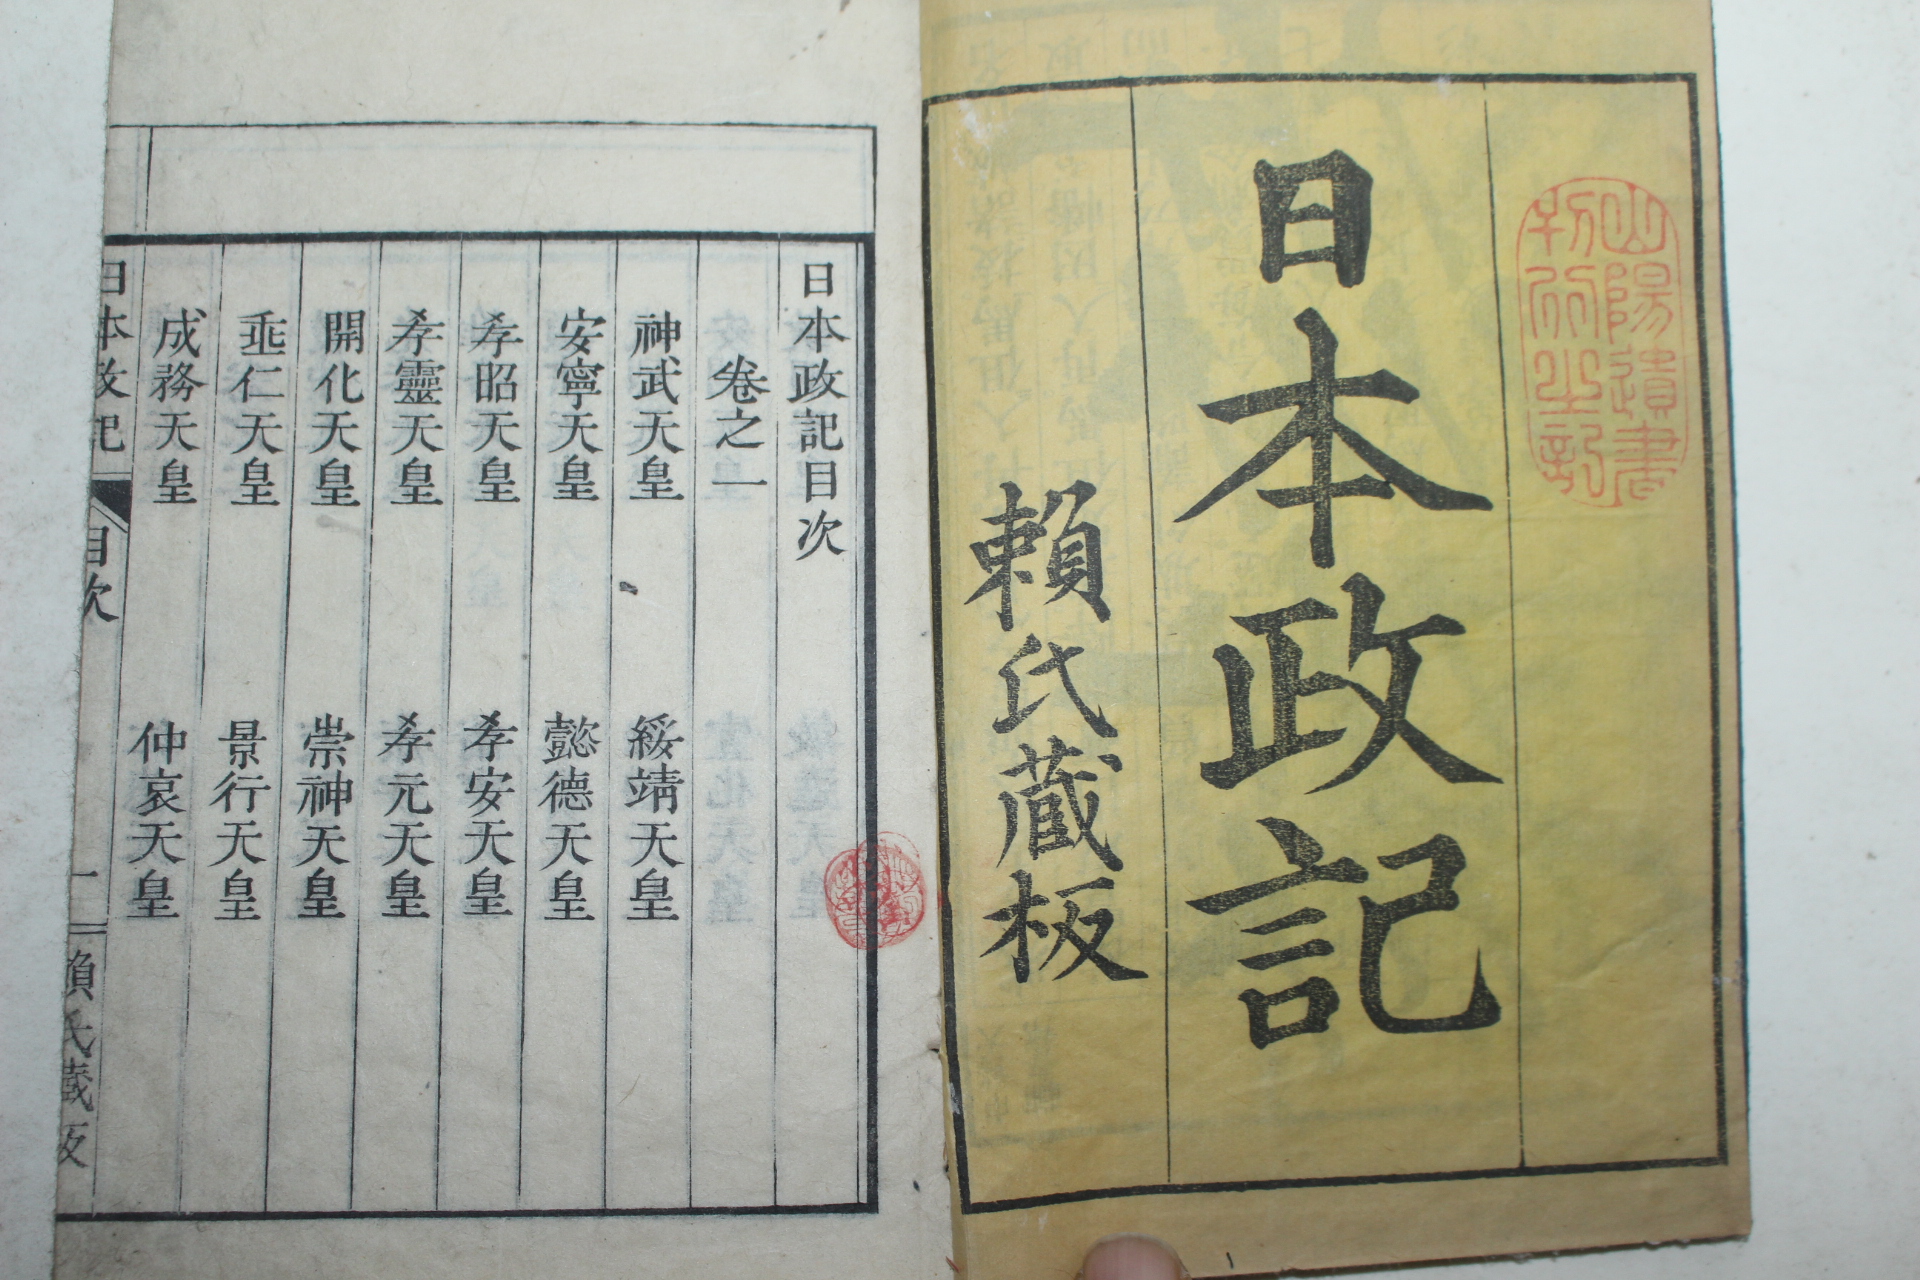 山陽遺書
日本政記
賴氏蔵板
日本政記目次
卷之一
神武天皇 綏靖天皇
安寧天皇 懿德天皇
孝昭天皇 孝安天皇
孝靈天皇 孝元天皇
開化天皇 崇神天皇
垂仁天皇 景行天皇
成務天皇 仲哀天皇
日本政記 目次 一 賴氏藏板